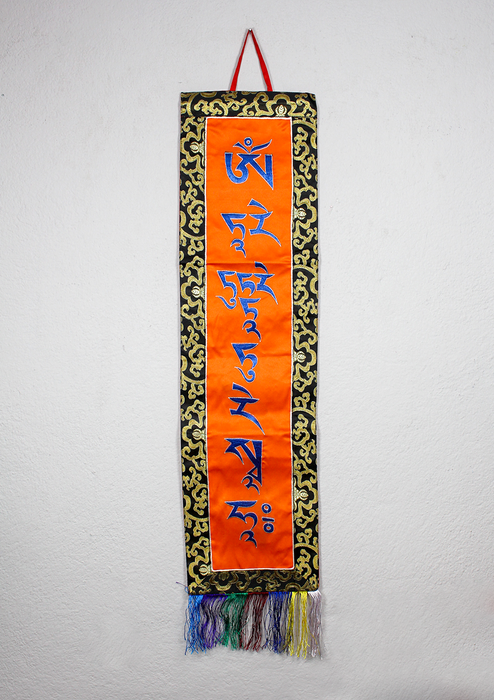 ཨོཾ
ཏཱ་རེ
ཏུཏྟཱ་རེ
ཏུ
རེ
སྭཱ
ཧཱ༔